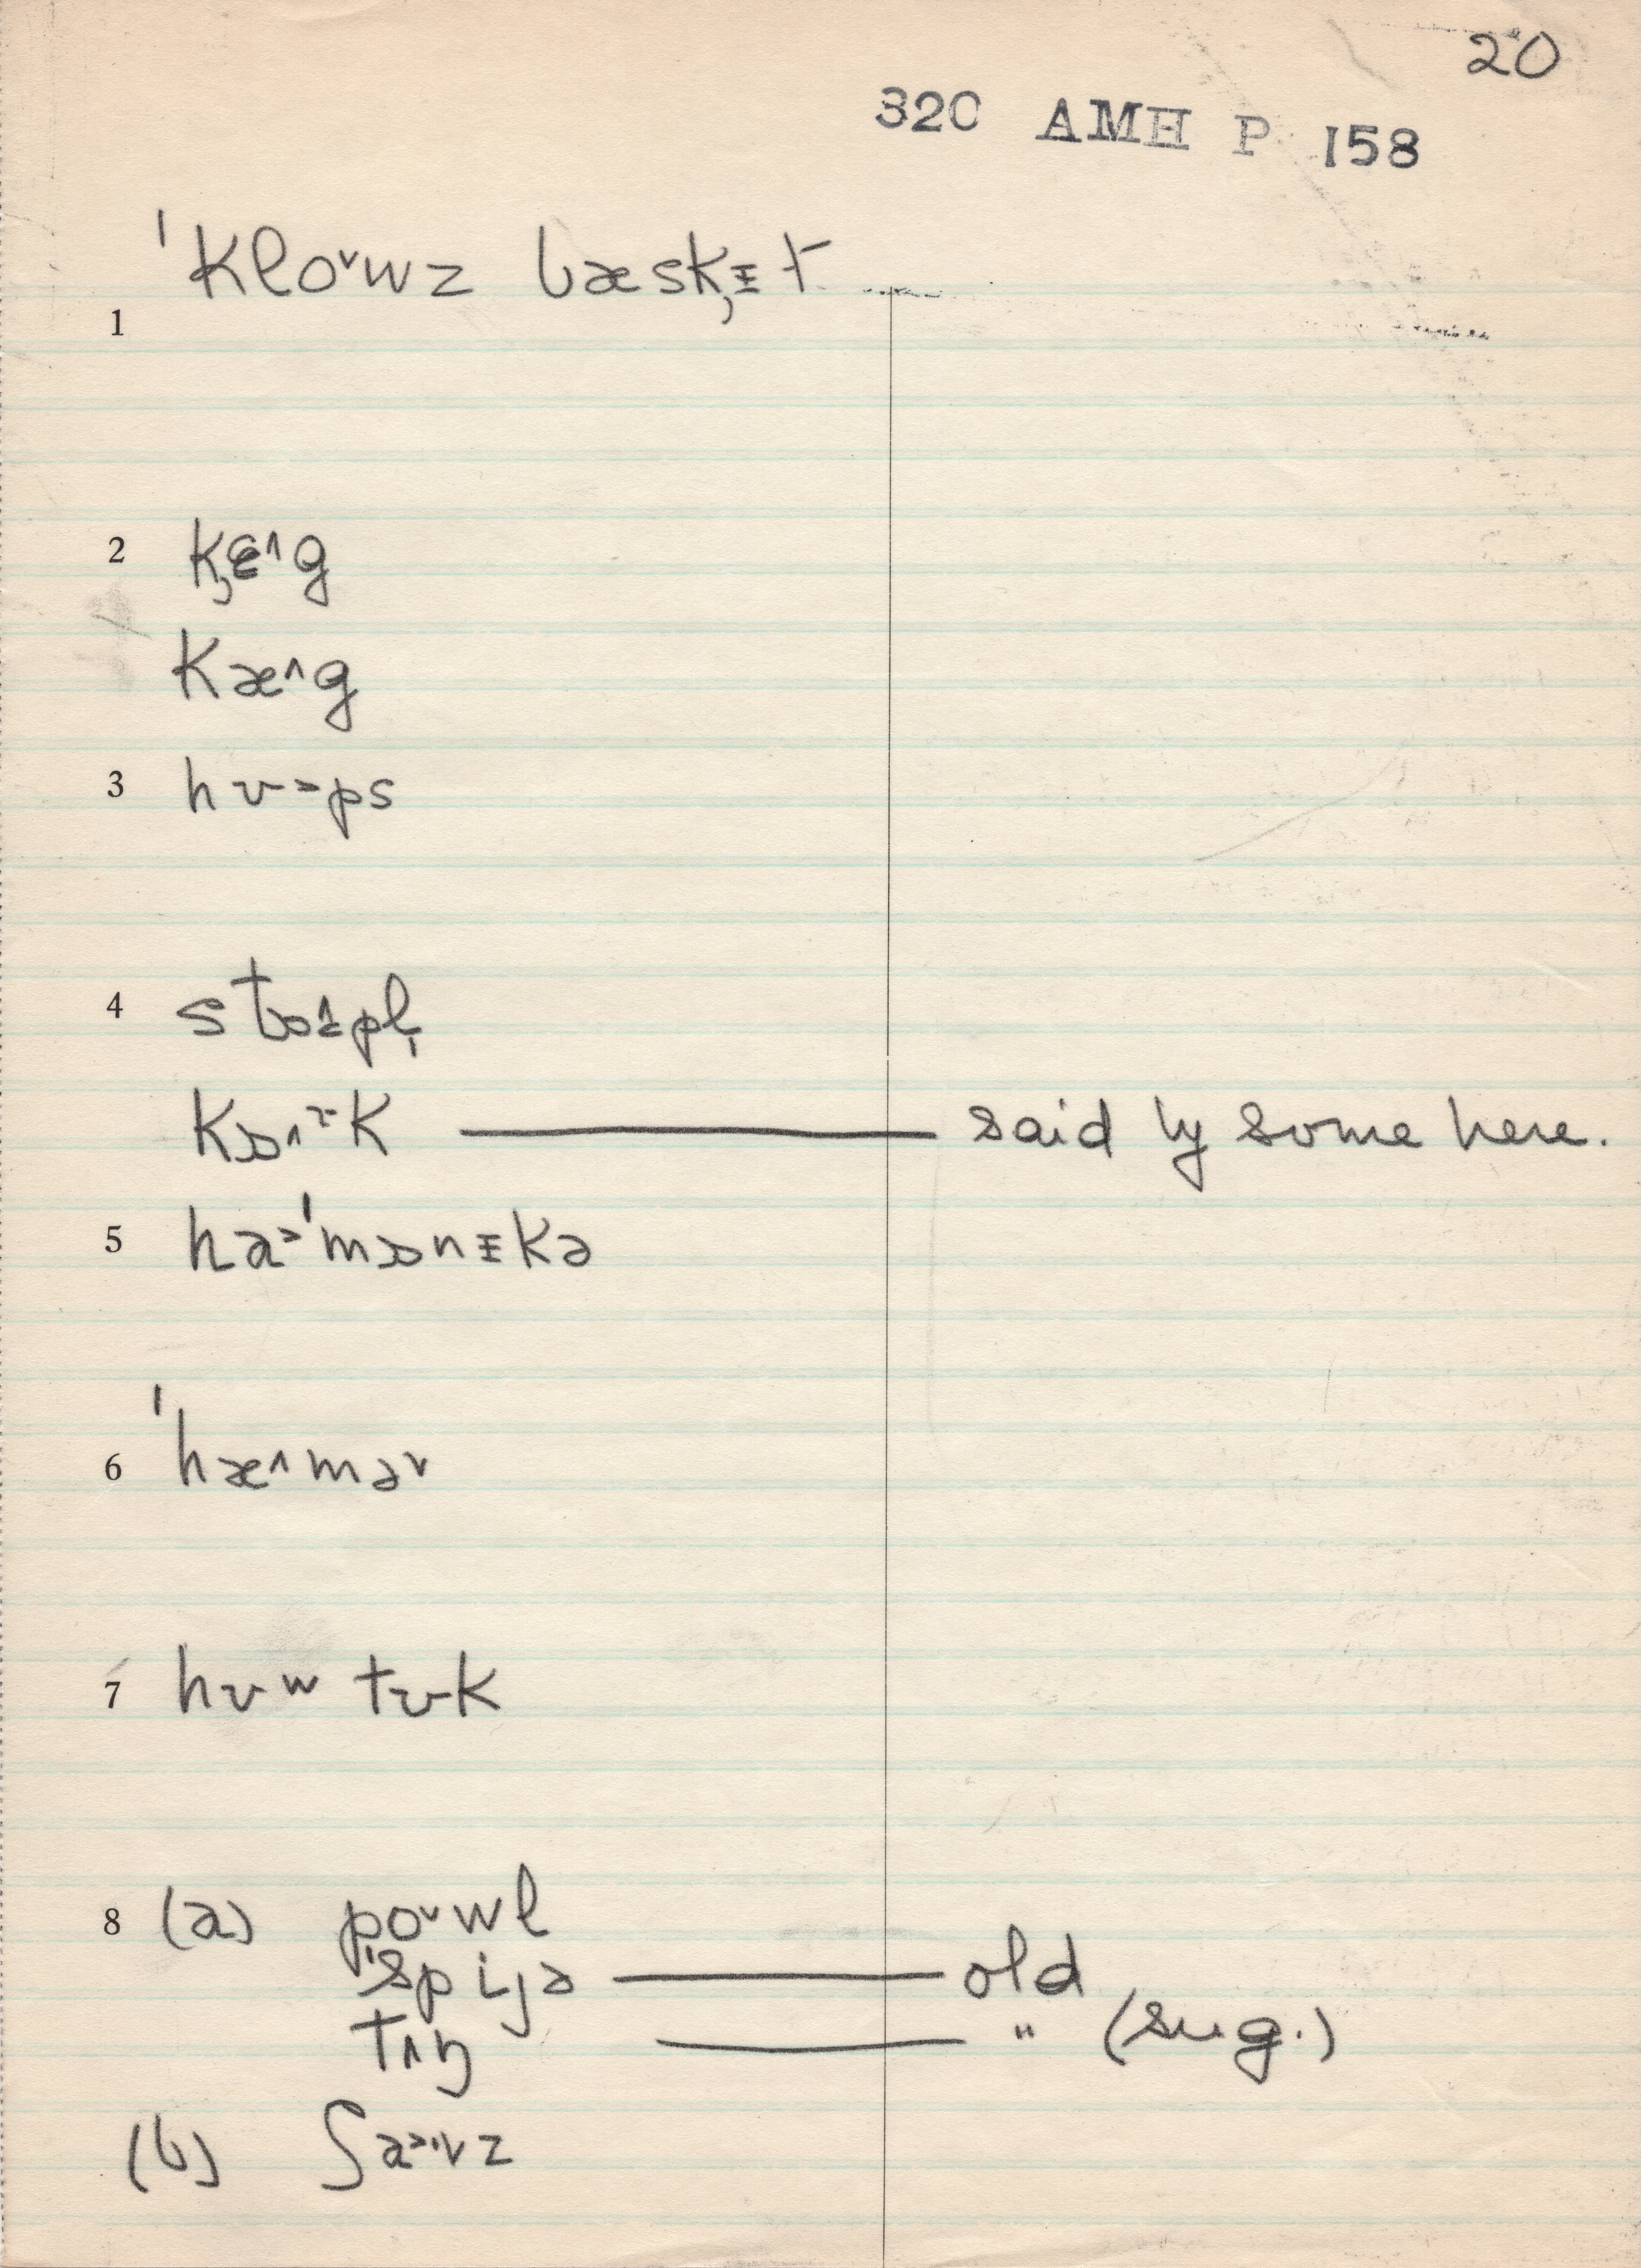 20
320 AMH P 158
1 ˈkloˇwz bæsk̡ᵻt
2 k̡ɛ^g
kæ^g
3 hʊ>ps
4 stɒ^pl̩
kɒ^k — said by some here.
5 ha>ˈmɒnᵻkə
6 ˈhæ^məˇ
7 hʊw tʊk
8 (a) poˇwl
ˈspijə — old
tʌŋ — " (sug.)
(b) ʃa>ˑvz